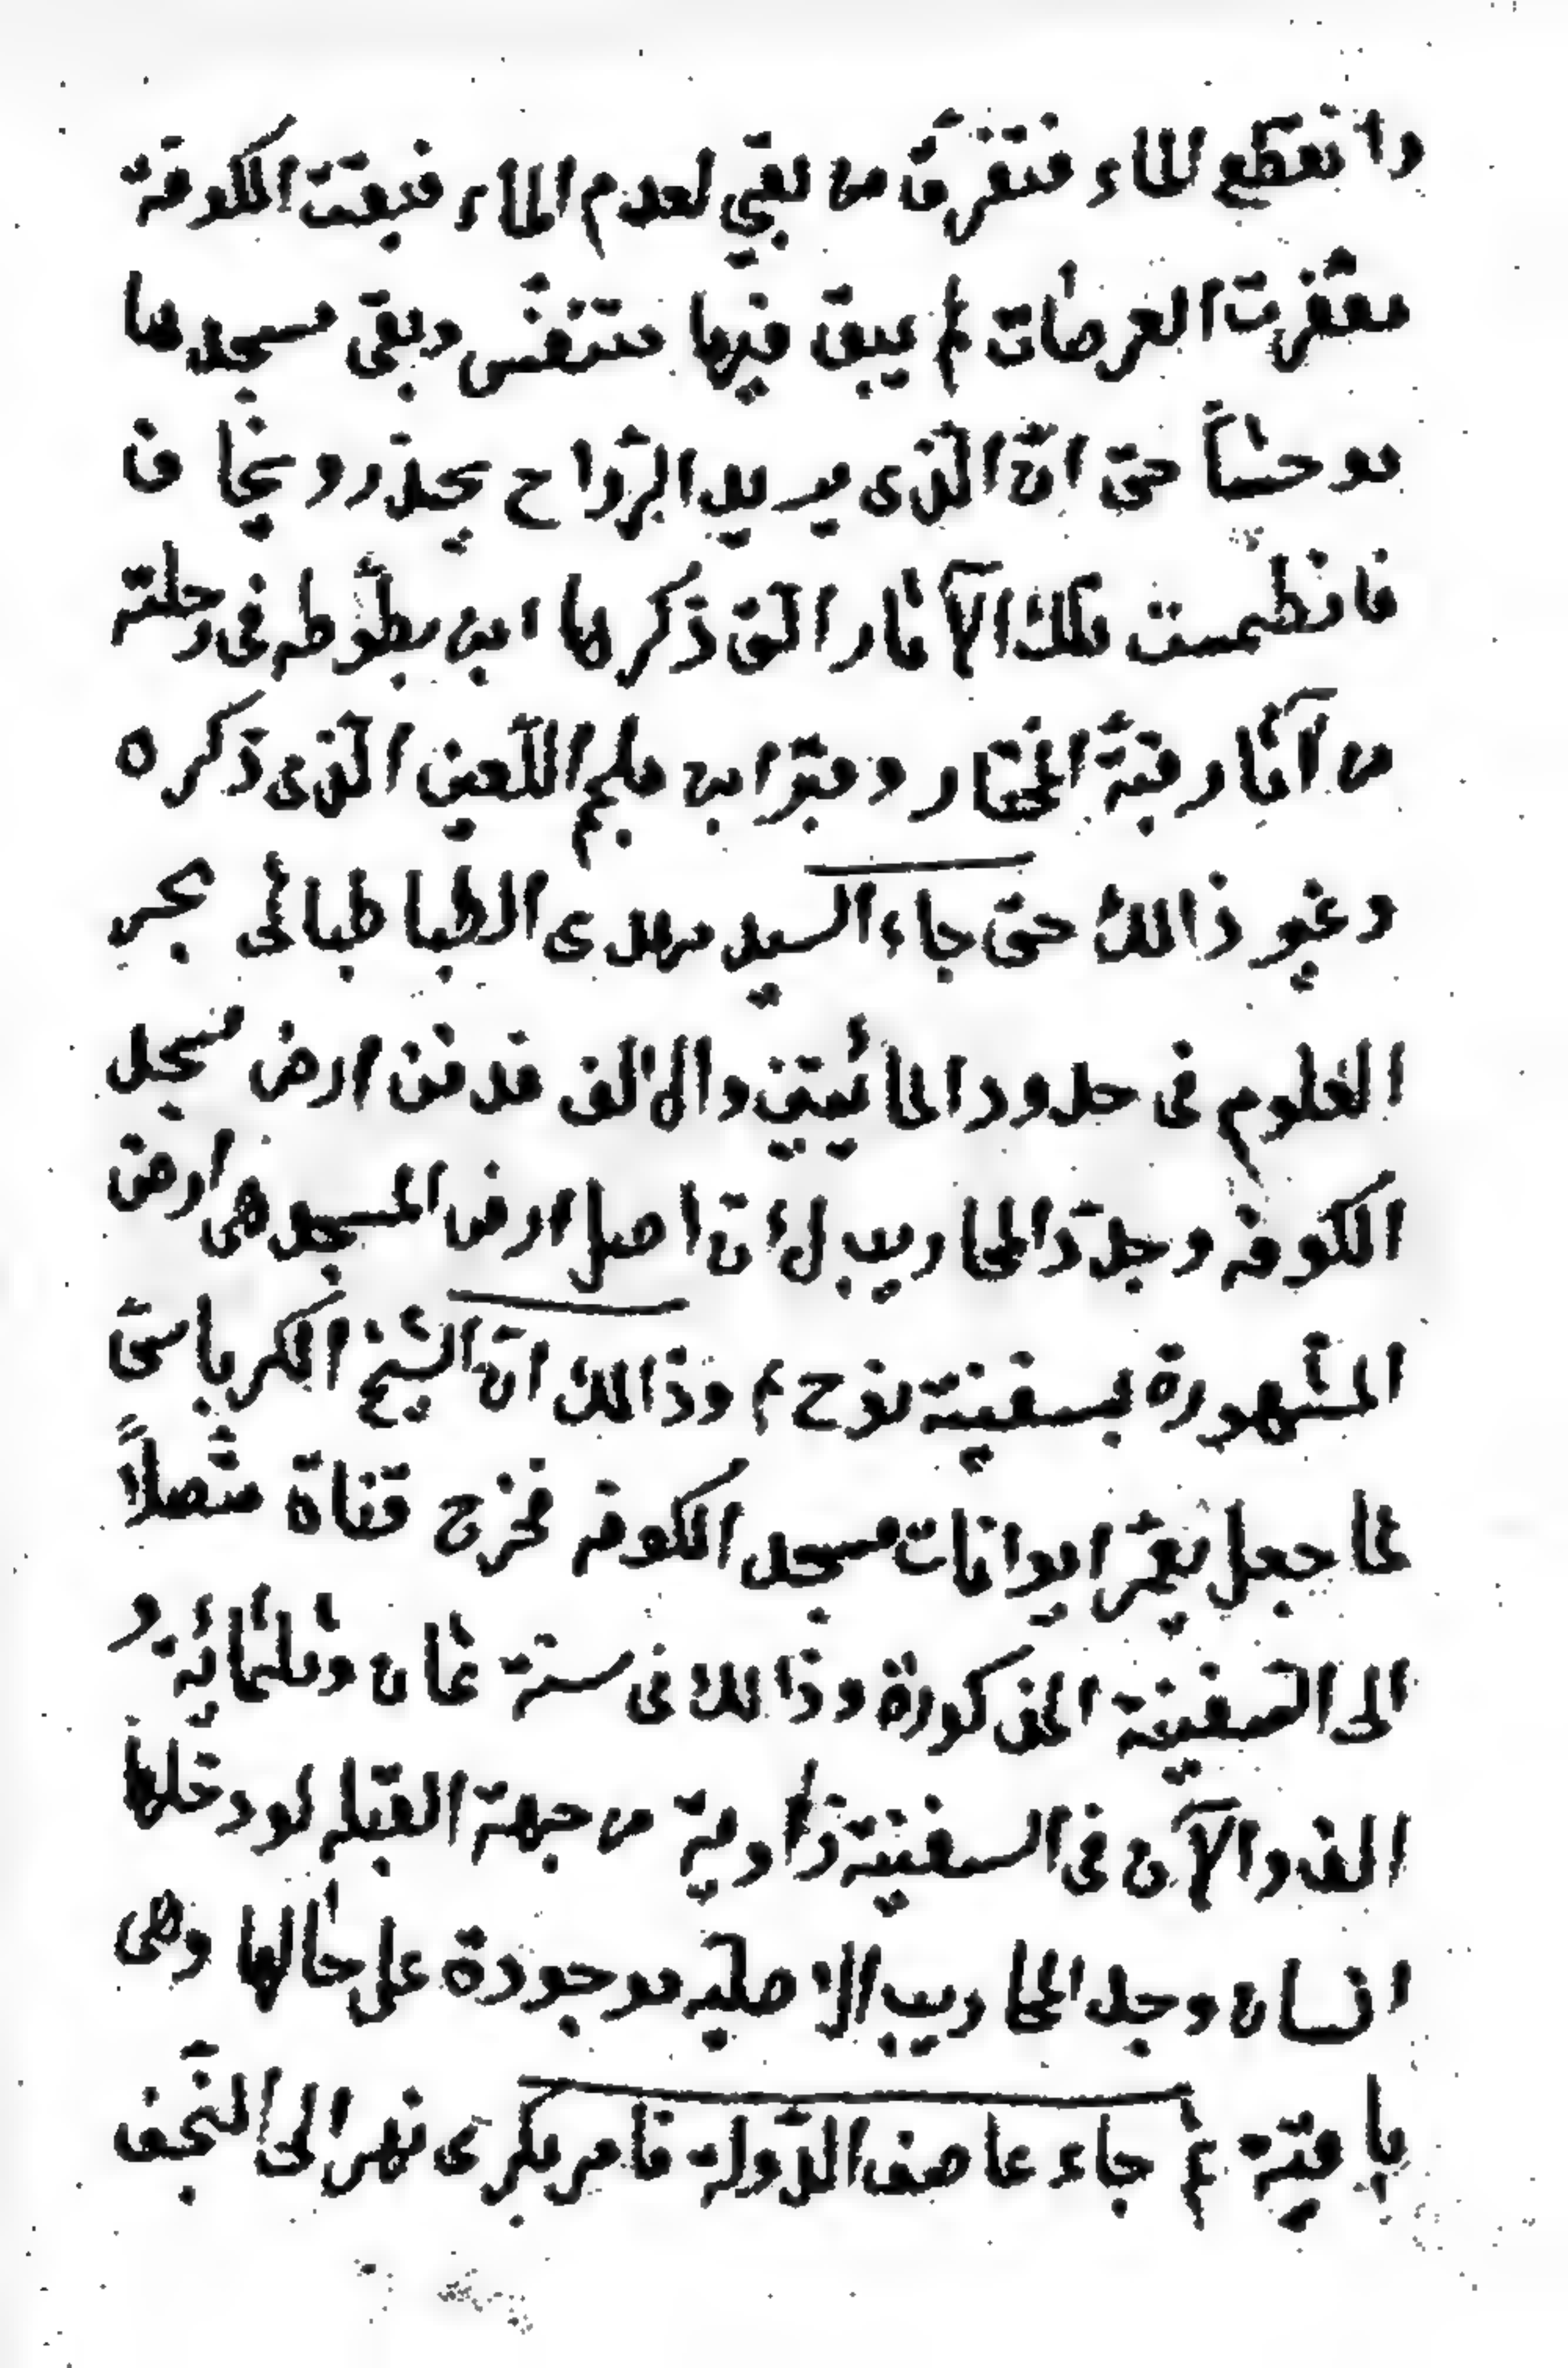 وانقطع الماء فتفرّق من بقي لعدم الماء فبقت الكوفة
مقفرت العرصات لم يبق فيها متنفّس وبقى مسجدها
موحشاً حتى انّ الّذى يريد الرّواح يحذر ويخاف
فانطمست تلك الآثار الّتى ذكرها ابن بطّوطه فى رحلته
من آثار قبّة المختار وقبر ابن ملجم اللّعين الّذى ذكره
وغير ذالك حتى جاء السيد مهدى الطباطبائى بحر
العلوم فى حدود المائيتين والالف فدفن ارض مسجد
الكوفه وجدّد المحاريب لانّ اصل ارض المسجد هى ارض
المشهورة بسفينة نوح ع وذالك انّ الشيخ الكرباسى
لما جعل يعمّر ايوانات مسجد الكوفه فخرج قناة متّصلاً
الى السّفينة المذكورة وذالك فى سنة ثمان وثلثمائة و
الف والآن فى السفينة زاوية من جهة القبله لو دخلها
انسان وجد المحاريب الاصليّه موجودة على حالها وهى
باقية ثم جاء عاصف الدّوله فامر بكرى نهر الى النّجف